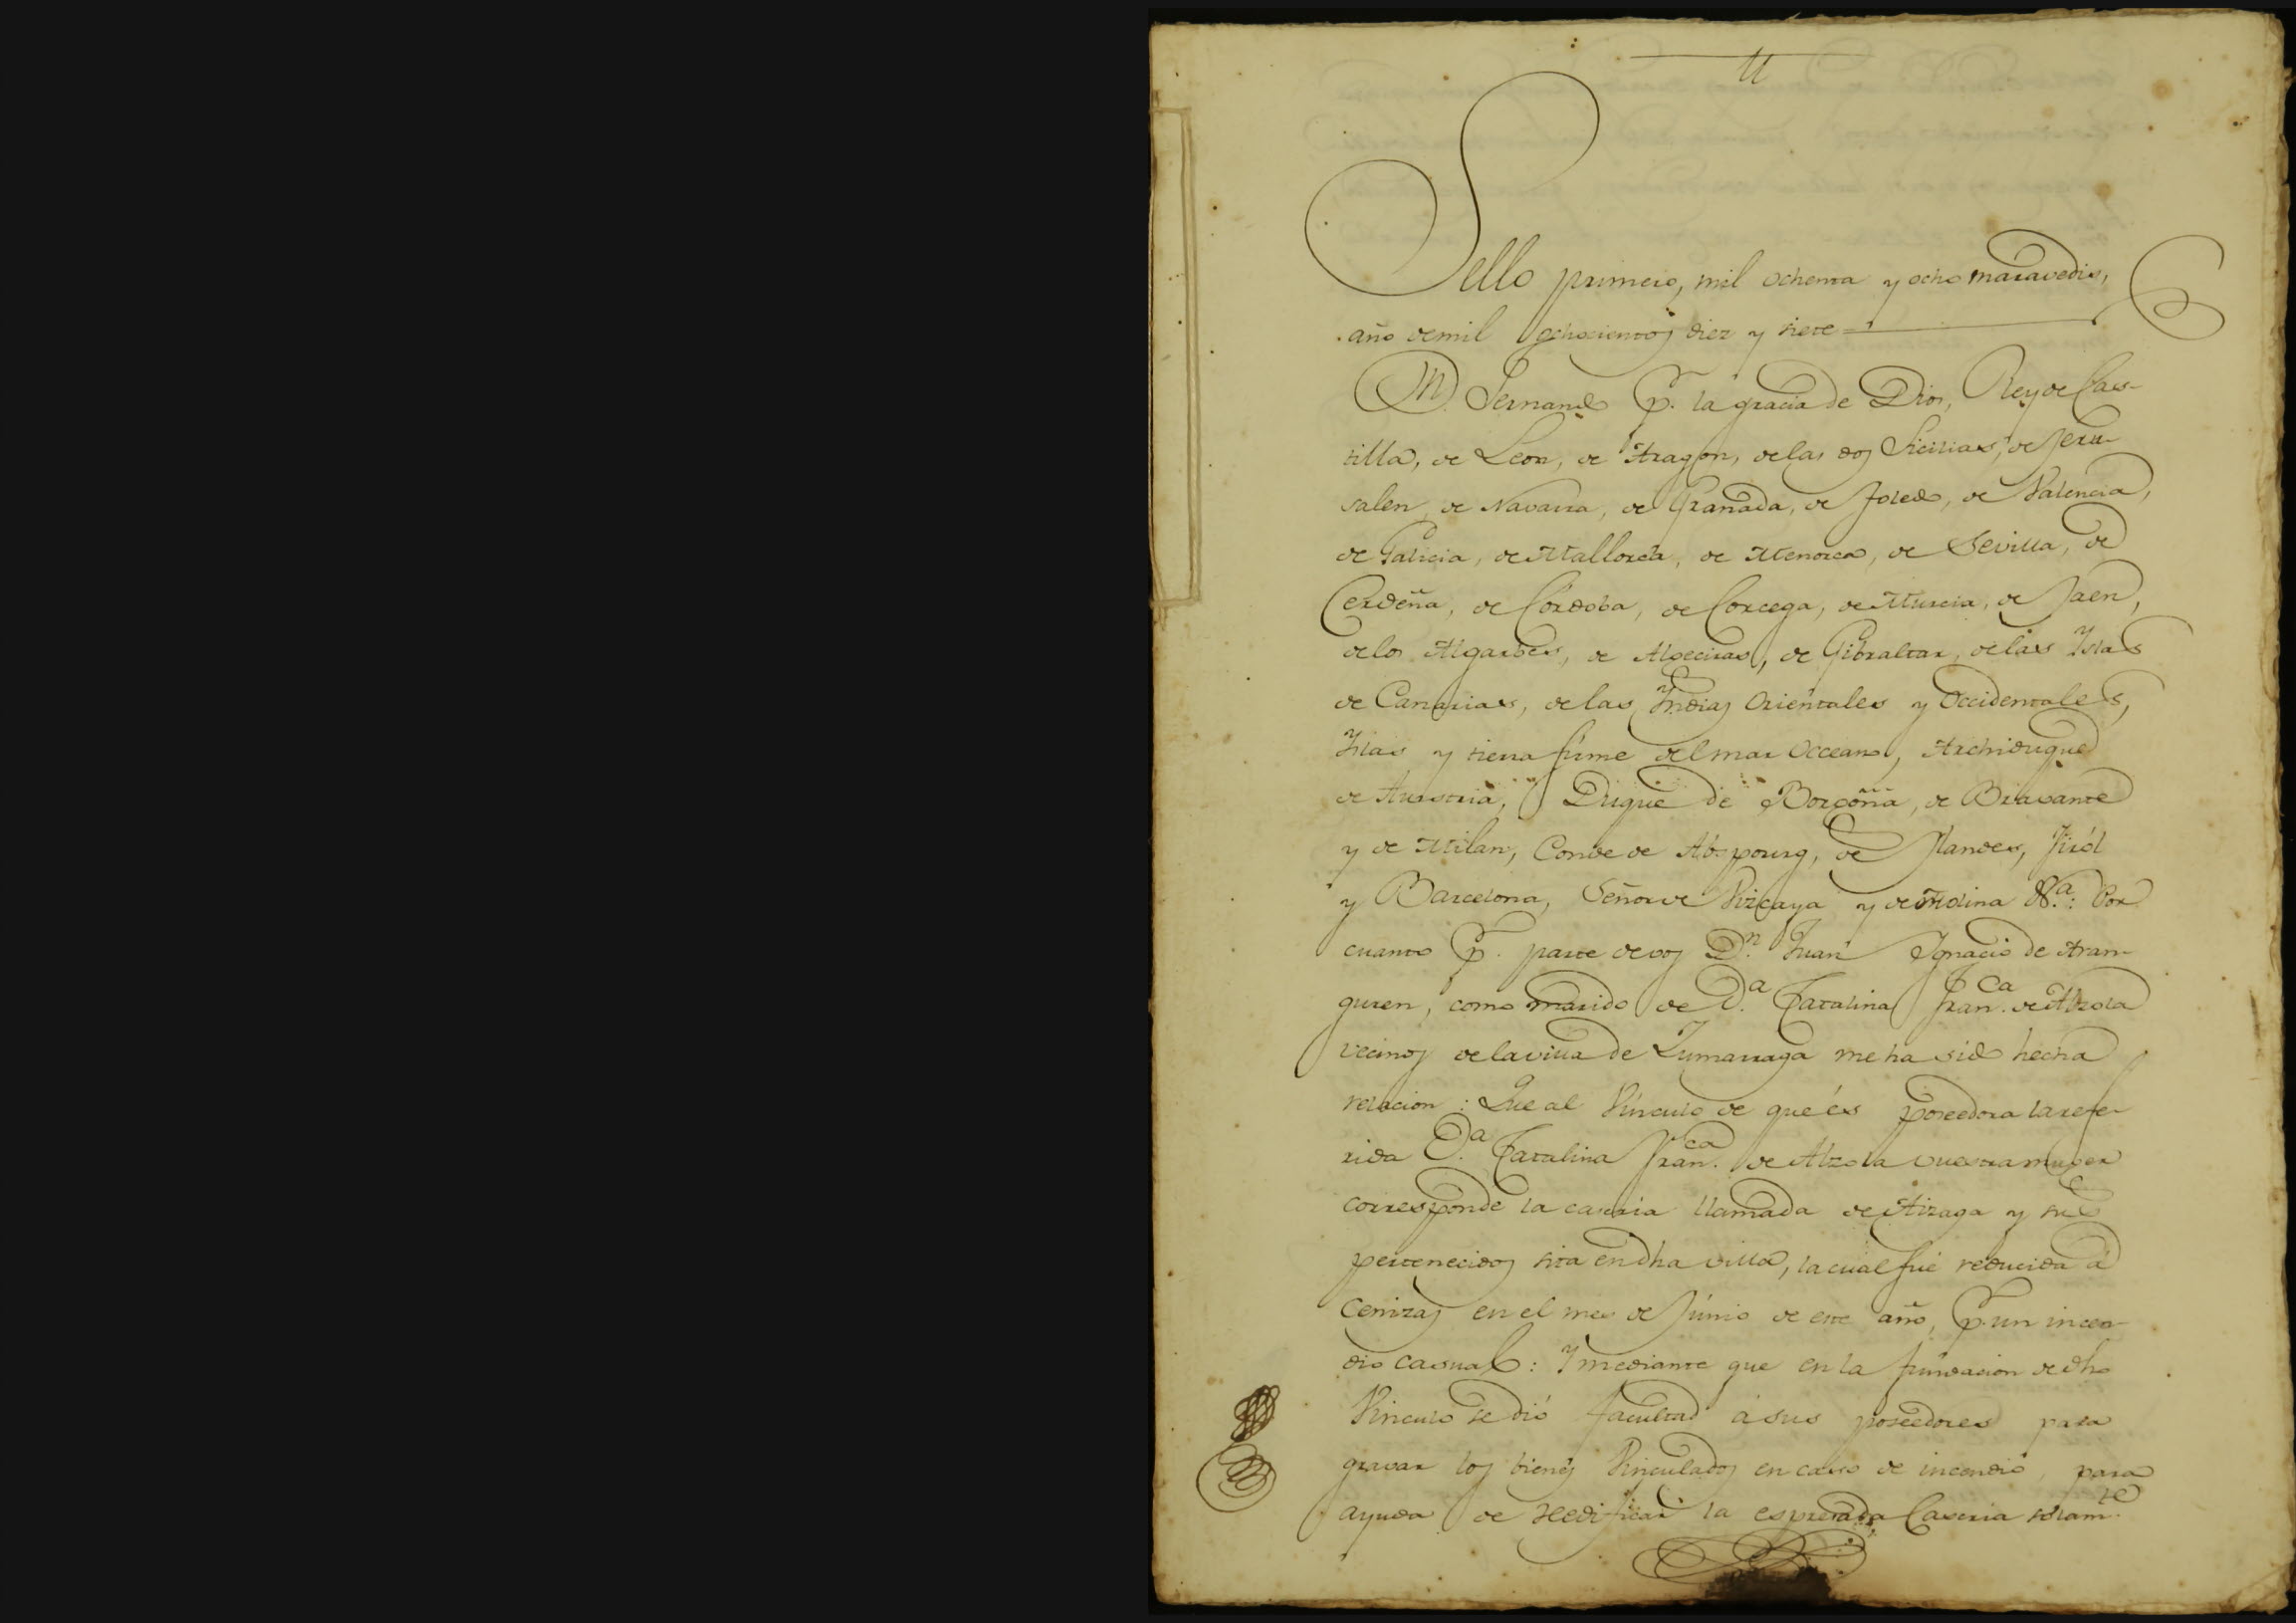 Sello primero, mil ochenta y ocho maravedis,
año de mil ochocientos diez y siete
Dn. Fernando pr. la gracia de Dios, Rey de Cas-
tilla, de Leon, de Aragon, de las dos Sicilias, de Jeru-
salen, de Navarra, de Granada, de Toledo, de Valencia,
de Galicia, de Mallorca, de Menorca, de Sevilla, de
Cerdeña, de Córdoba, de Corcega, de Murcia, de Jaen,
de los Algarbes, de Algeciras, de Gibraltar, de las Yslas
de Canarias, de las Yndias Orientales y Occidentales,
Yslas y tierra firme del mar Occeano, Archiduque
de Austria, Duque de Borgoña, de Bravante
y de Milan, Conde de Abspourg, de Flandes, Tiról
y Barcelona, Señor de Vizcaya y de Molina &a.: Por
cuanto pr. parte de vos Dn. Juan Ygnacio de Aran-
guren, como marido de Da. Catalina Franca. de Alzola
vecinos de la villa de Zumarraga me ha sido hecha
relacion: Que al Vínculo de que és poseedora la refe-
rida Da. Catalina Franca. de Alzola vuestra muger
corresponde la caseria llamada de Aizaga y sus
pertenecidos sita en dha villa, la cual fué reducida á
cenizas en el mes de Júnio de este año, pr. un incen-
dio casual: Y mediante que en la fundacion de dho
Vinculo se dió facultad á sus poseedores para
gravar los bienes Vinculados en caso de incendio, para
ayuda de reedificar la espresada Caseria solamte.